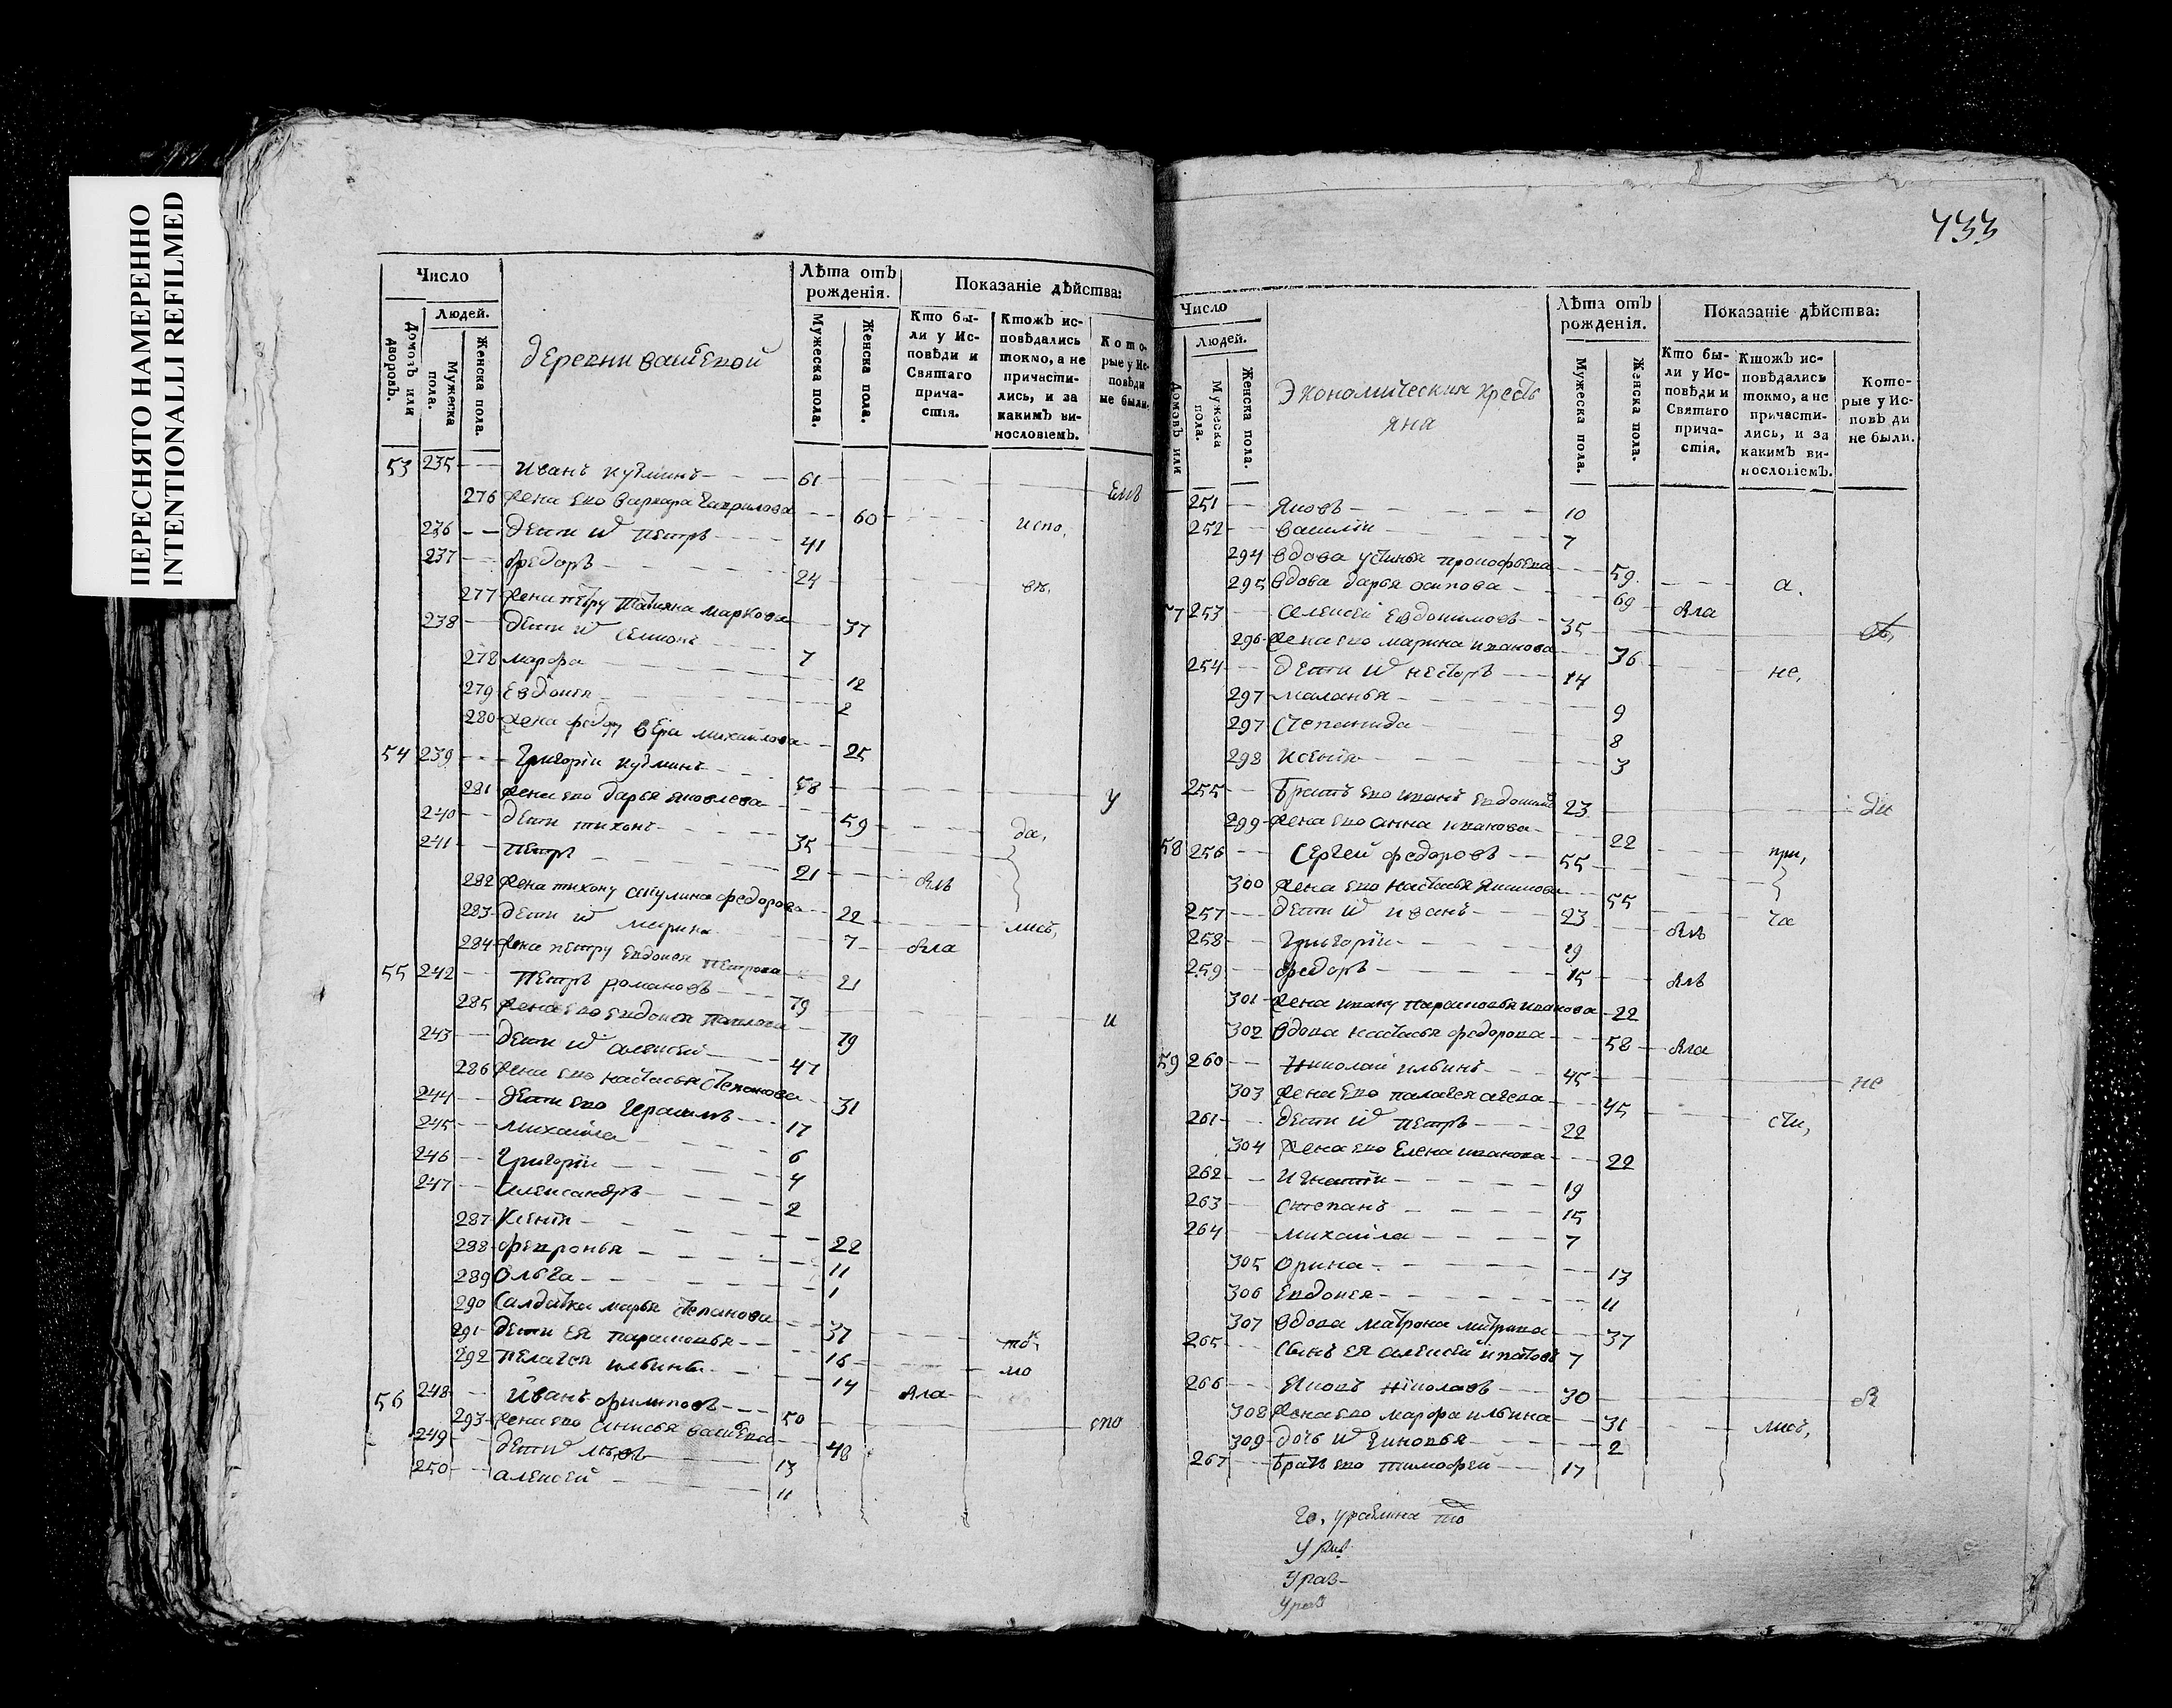 ПЕРЕСНЯТО НАМЕРЕННО
INTENTIONALLI REFILMED
Число
Людей.
Домовъ или дворовъ.
Мужеска пола.
Женска пола.
деревни
Лѣта отъ рожденія.
Мужеска пола.
Женска пола.
Показаніе дѣйства:
Кто были у Исповѣди и Святаго причастія.
Ктожъ исповѣдались токмо, а не причастились, и за какимъ винословіемъ.
Которые у Исповѣди не были.
53 235 Иванъ Кузминъ 61
276 Жена ево Варвара Гаврилова 60
236 Дети Ѡ Петръ 41 испо,
237 Федоръ 24
277 Жена Петру Татияна Маркова 37
238 Дети Ѡ Семионъ 7
278 Марфа 12
279 Евдокея 2
280 Жена Вера Михайлова 25
54 239 Григорiи Кузминъ 58
281 Жена ево Дарья Яковлева 59 у
240 Дети Тихонъ 35 да,
241 Петръ 21
282 Жена Тихону Акулина Федорова 22
283 Дети Ѡ Марина 7 лись,
284 Жена Петру Евдокея Петрова 21
55 242 Петръ Романовъ 79
285 Жена ево Евдокея 79 и
243 Дети Ѡ Алексей 47
286 Жена ево Настасья Степанова 31
244 Дети ево Герасимъ 17
245 Михаила 6
246 Григорiи 4
247 Александръ 2
287 Ксенiя 22
288 Февронья 11
289 Ольга 1
290 Салдатка Марья Степанова 37
291 Дети ея Парасковья 16 ток
292 Пелагея Ильины 14 мо
56 248 Иванъ Филиповъ 50
293 Жена ево Анисья 48
249 Дети Ѡ 13
250 Алексей 11
433
Число
Людей.
Домовъ или
Мужеска пола.
Женска пола.
Экономическия крестьяна
Лѣта отъ рожденія.
Мужеска пола.
Женска пола.
Показаніе дѣйства:
Кто были у Исповѣди и Святаго причастія.
Ктожъ исповѣдались токмо, а не причастились, и за какимъ винословіемъ.
Которые у Исповѣди не были.
251 Яковъ 10
252 Василiи 7
294 Вдова Устинья Прокофьева 59
295 Вдова Дарья Осипова 69 а.
57 253 Алексей Евдокимовъ 35
296 Жена ево Марина Иванова 36
254 Дети Ѡ Несторъ 14 не,
297 Маланья 9
297 Степанида 8
298 Ксенiя 3
255 Братъ ево Иванъ Евдокимов 23 ди
299 Жена ево Анна Иванова 22
58 256 Сергей Федоровъ 55 при,
300 Жена ево Настасья 55
257 Дети Ѡ Иванъ 23 ча
258 Григорiи 19
259 Федоръ 15
301 Жена Ивану Парасковья Иванова 22
302 Вдова Настасья Федорова 58
59 260 Николай Ильинъ 45
303 Жена ево Палагея 45 не
261 Дети Ѡ Петръ 22 сти,
304 Жена ево Елена Иванова 22
262 Игнатiи 19
263 Степанъ 15
264 Михаила 7
305 Орина 13
306 Евдокея 11
307 Вдова Матрона 37
265 Сынъ ея Алексей 7
266 Яковъ Николаевъ 30
308 Жена ево Марфа Ильина 31 лись,
309 Дочь Ѡ Зиновья 2
267 Братъ ево Тимофеи 17
Урав